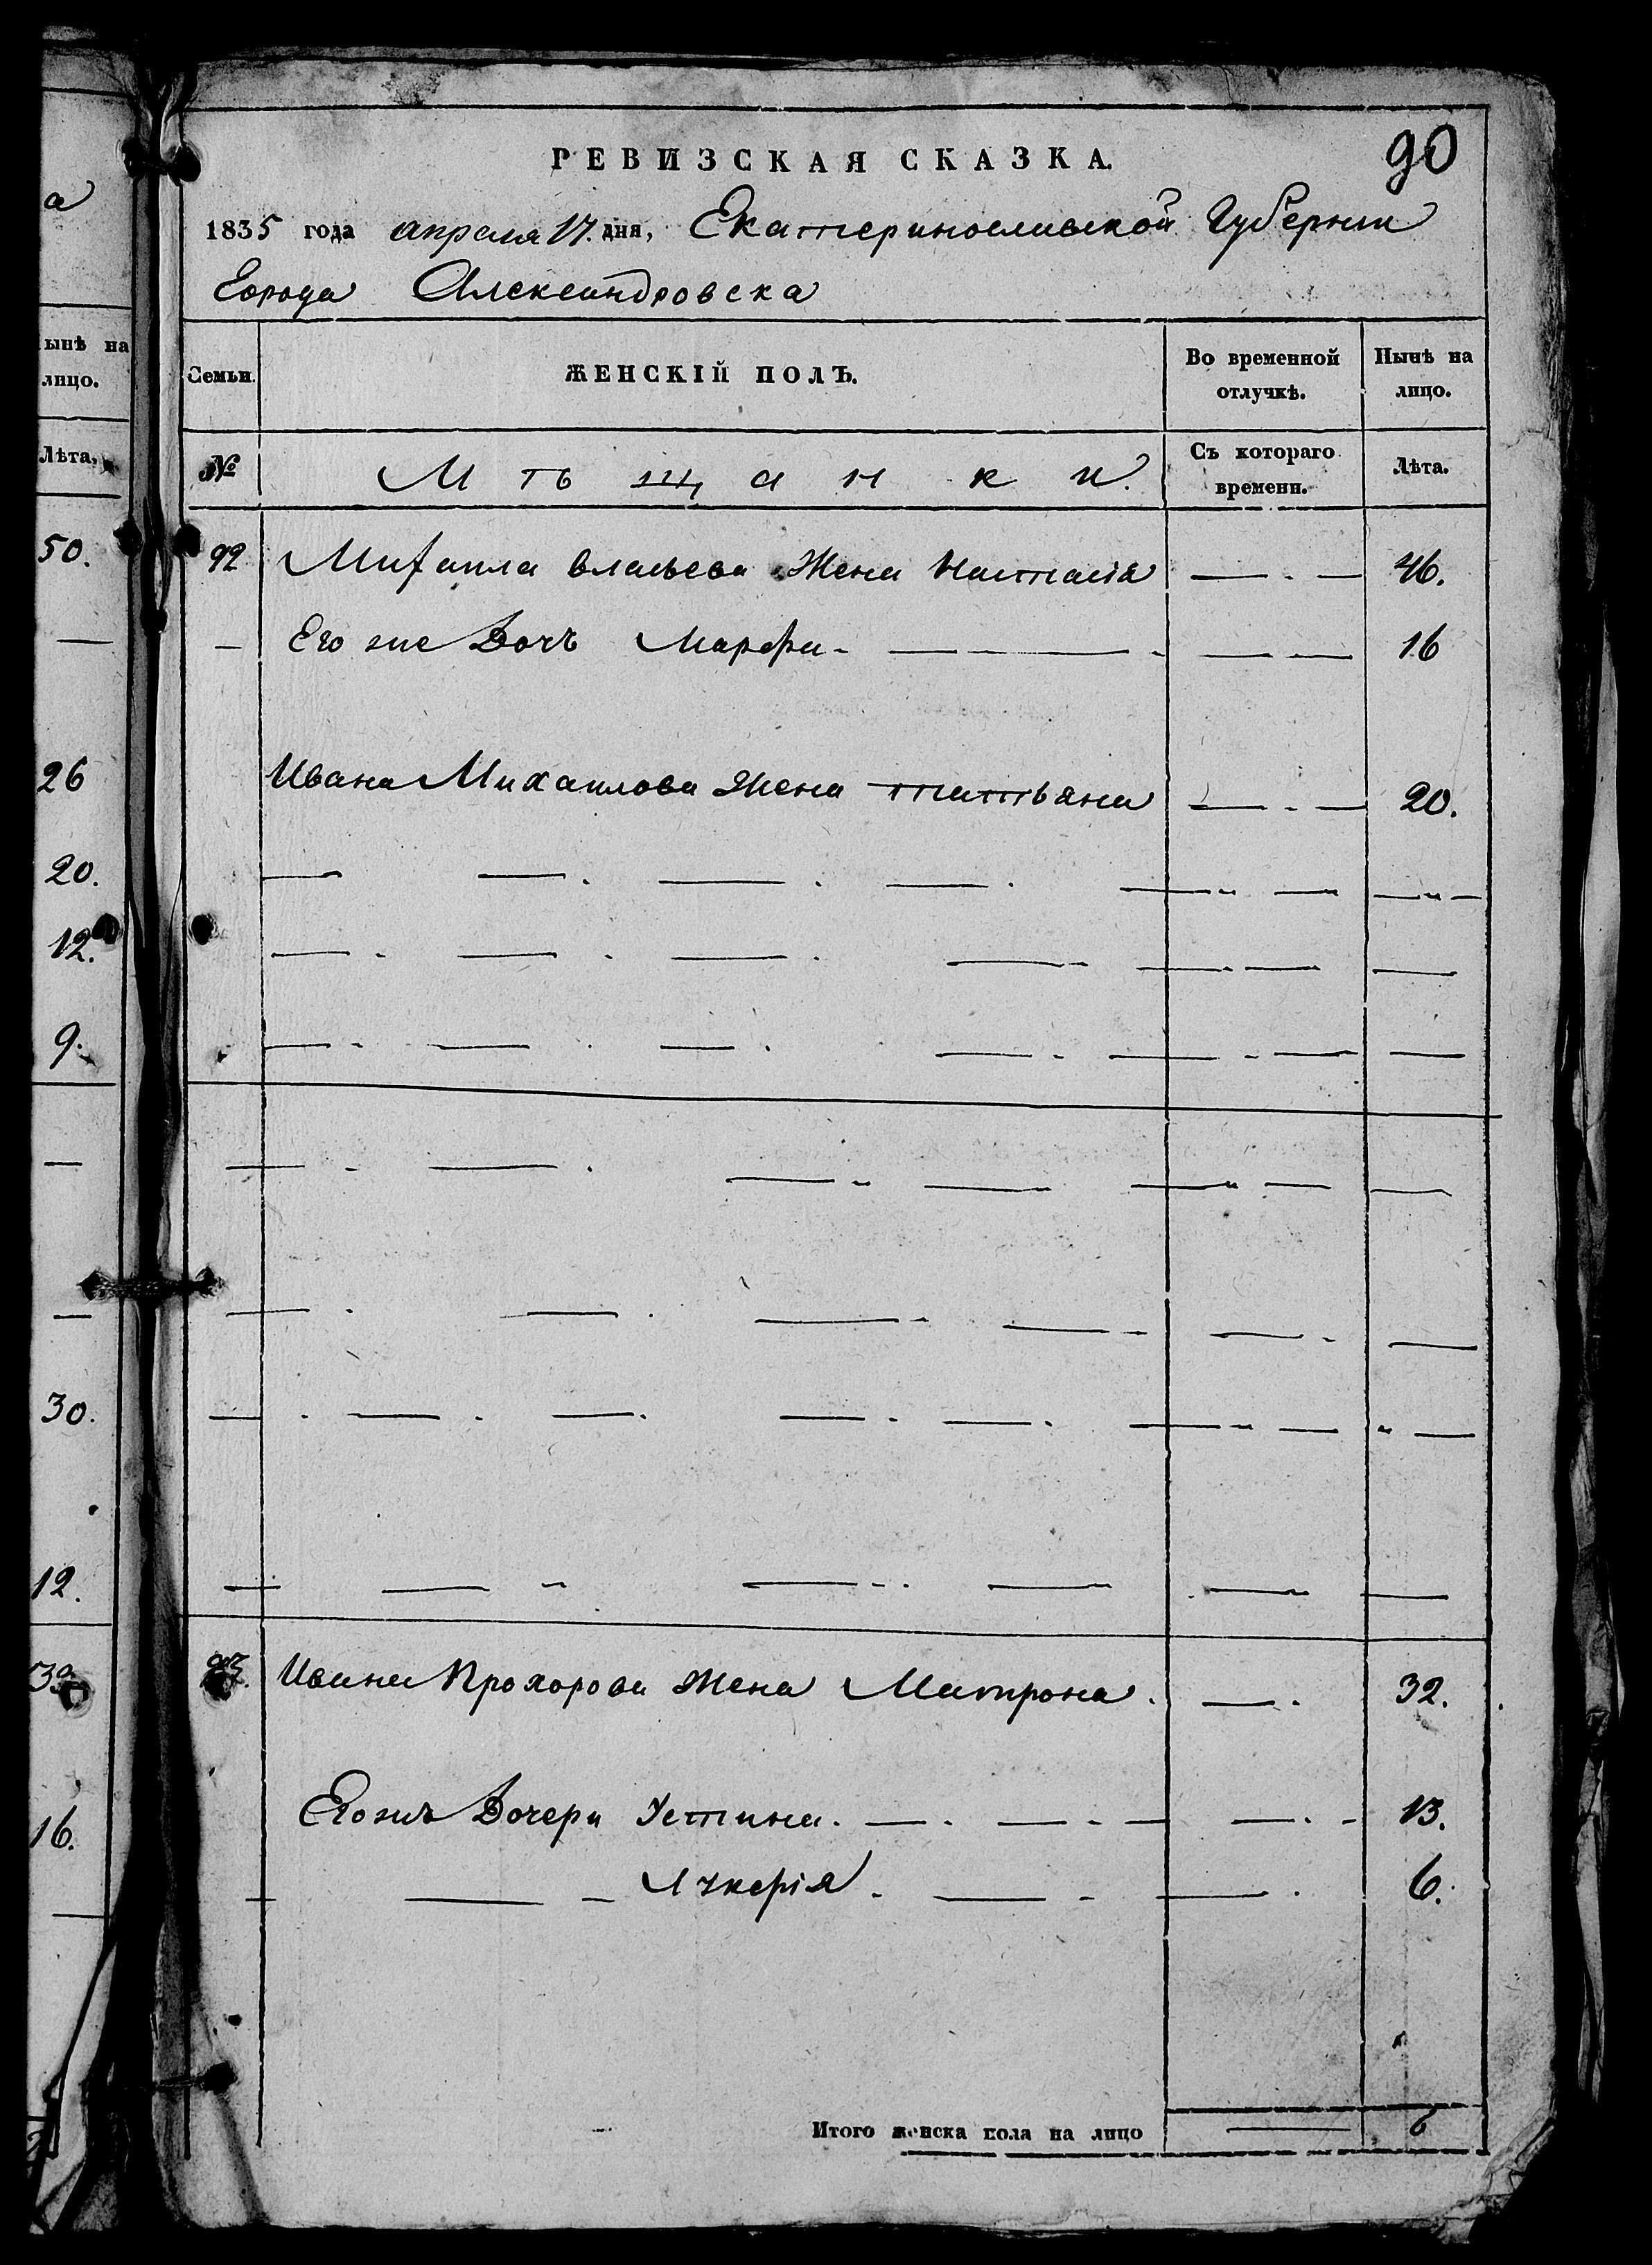 а
РЕВИЗСКАЯ СКАЗКА.
90
1835 года апреля 17. дня, Екатеринославской Губернии
Города Александровска
ынѣ на лицо.
Семьи.
ЖЕНСКІЙ ПОЛЪ.
Во временной отлучкѣ.
Нынѣ на лицо.
Лѣта,
№
Мѣщанки.
Съ котораго времени.
Лѣта.
50.
92 Михаила Власьева Жена Настасія — . — 46.
— Его же Дочь Марфа - — - — - — — 16
26
Ивана Михаилова Жена татьяна — - — 20.
20.
12.
9.
30.
12.
39
93. Ивана Прохорова Жена Матрона. — . 32.
16.
Егожъ Дочери Устина. — . — - — — . - 13.
— — - — - — . 6.
Итого женска пола на лицо — 6